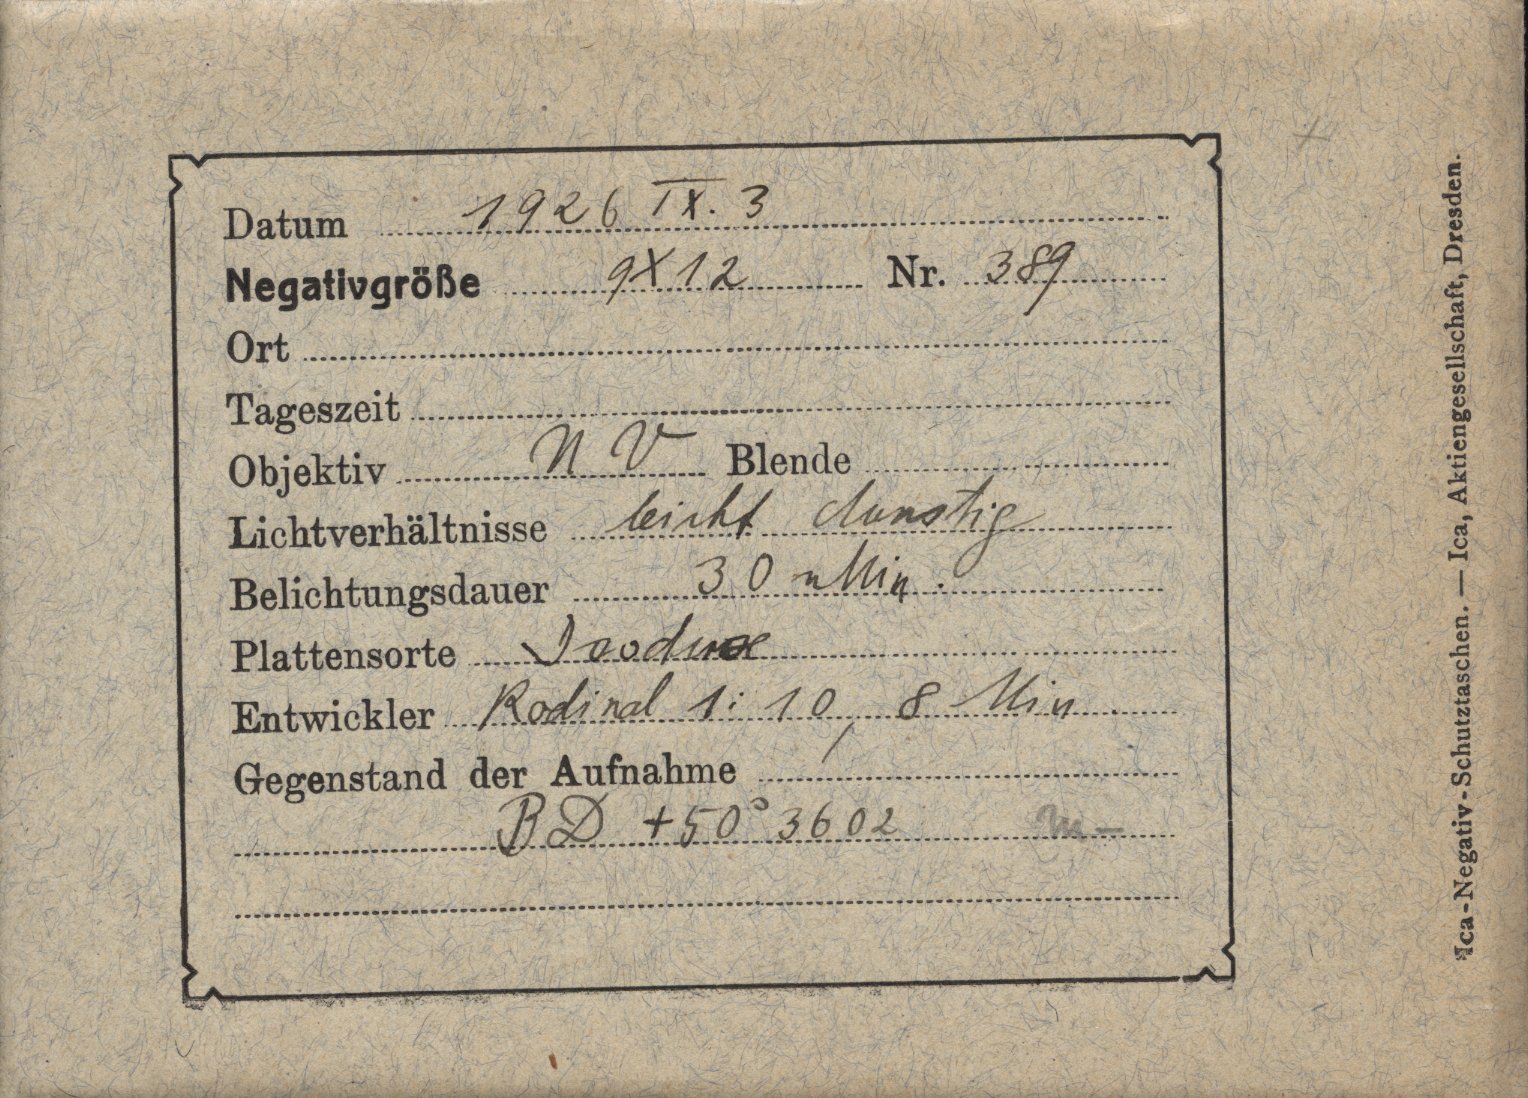 Datum 1926 IX. 3
Negativgröße 9X12 Nr. 389
Ort
Tageszeit
Objektiv N V Blende
Lichtverhältnisse leicht dunstig
Belichtungsdauer 30 Min.
Plattensorte Isodux
Entwickler Rodinal 1:10, 8 Min.
Gegenstand der Aufnahme
BD +50° 3602
Ica-Negativ-Schutztaschen. — Ica, Aktiengesellschaft, Dresden.